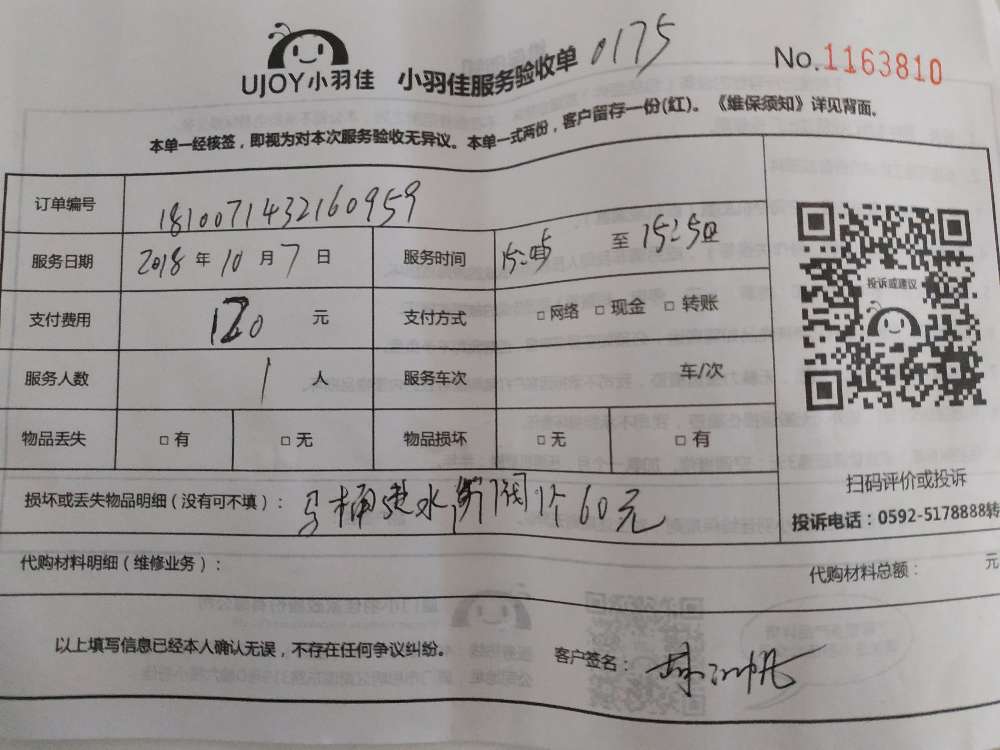 UJOY小羽佳 小羽佳服务验收单 0175 No.1163810
本单一经核签，即视为对本次服务验收无异议。本单一式两份，客户留存一份(红)。《维保须知》详见背面。
订单编号 1810071432160959
服务日期 2018 年 10 月 7 日 服务时间 至 15:50
支付费用 120 元 支付方式 □ 网络 □ 现金 □ 转账
服务人数 1 人 服务车次 车/次
物品丢失 □ 有 □ 无 物品损坏 □ 无 □ 有
投诉或建议
扫码评价或投诉
投诉电话：0592-5178888转
损坏或丢失物品明细（没有可不填）： 马桶进水阀1个60元
代购材料明细（维修业务）： 代购材料总额： 元
以上填写信息已经本人确认无误，不存在任何争议纠纷。 客户签名：